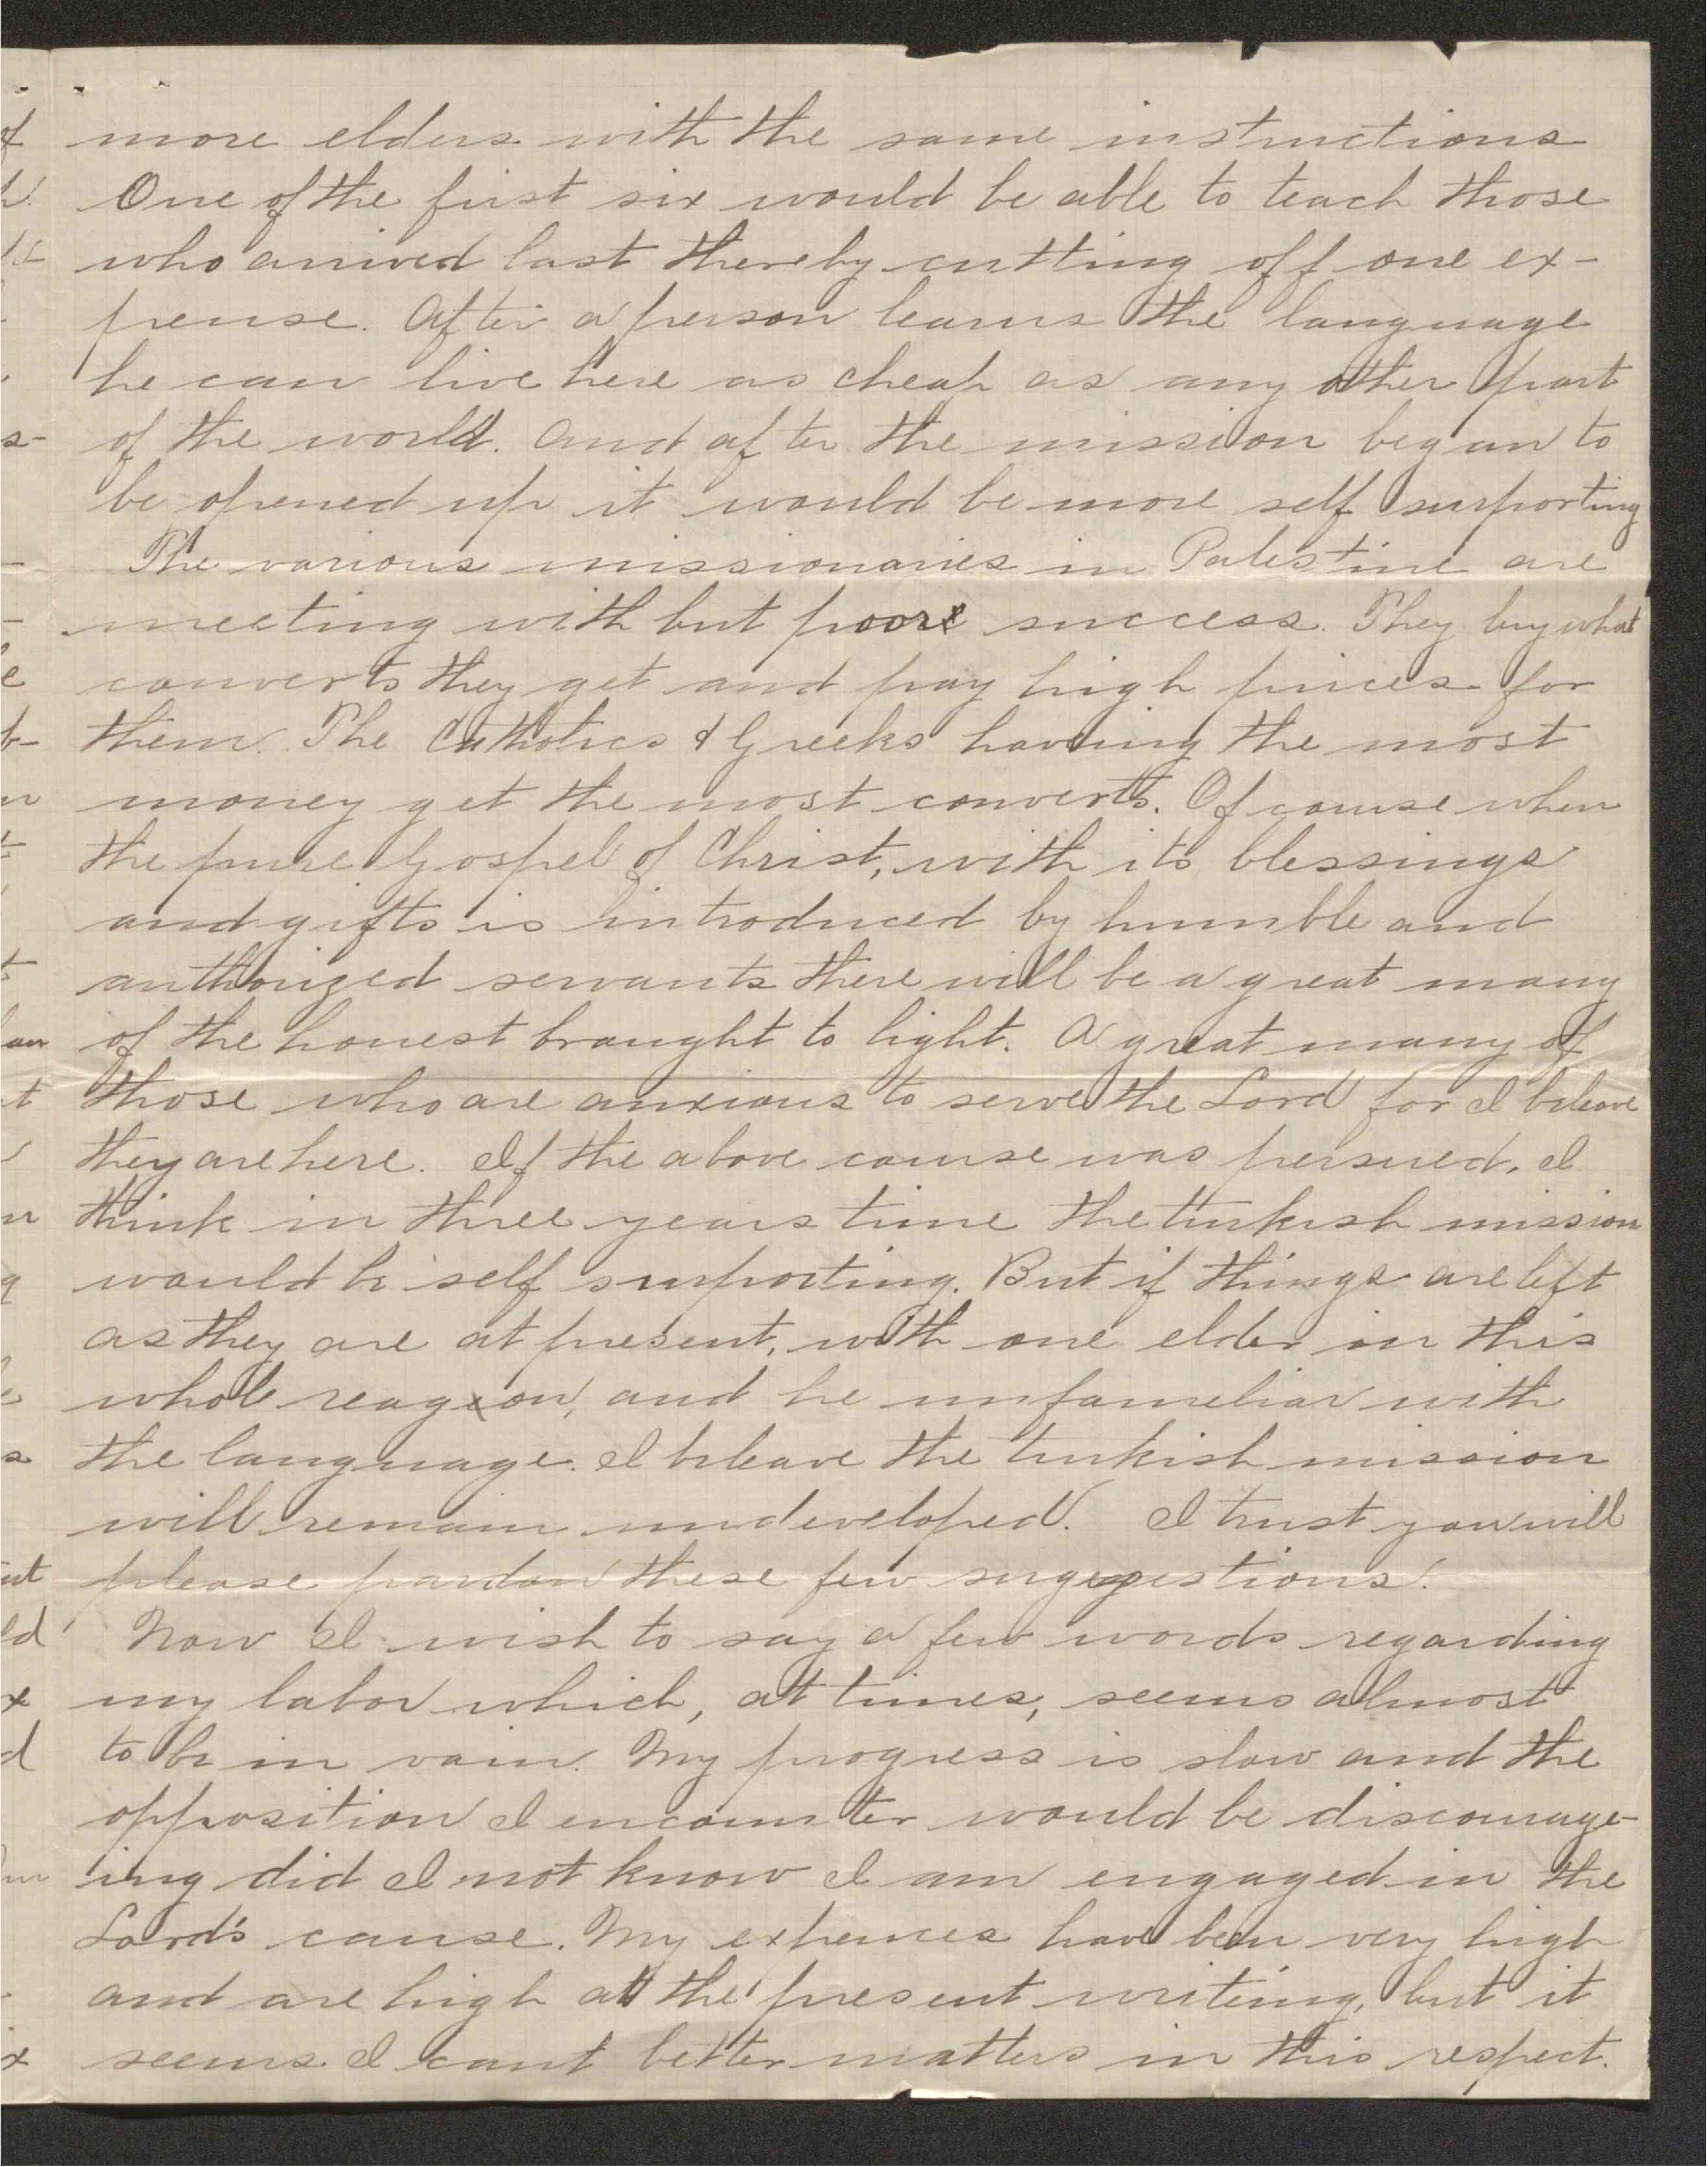 more elders with the same instructions
One of the first six would be able to teach those
who arrived last thereby cutting off one ex-
pense. After a person learns the language
he can live here as cheap as any other part
of the world. And after the mission began to
be opened up it would be more self surporting
The various missionaries in Palestine are
meeting with but poor success. They buy what
converts they get and pay high prices for
them. The Catholics & Greeks having the most
money get the most converts. Of course when
the pure Gospel of Christ, with its blessings
and gifts is introduced by humble and
authorized servants there will be a great many
of the honest braught to light. A great many of
those who are anxious to serve the Lord for I beleave
they are here. If the above course was persued, I
think in three years time the turkish mission
would be self surporting. But if things are left
as they are at present, with one elder in this
whole reagon, and he unfameliar with
the language. I beleave the turkish mission
will remain undeveloped. I trust you will
please pardon these few suggestions.
Now I wish to say a few words regarding
my labor which, at times, seems almost
to be in vain. My progress is slow and the
opposition I encounter would be discourage-
ing did I not know I am engaged in the
Lord's cause. My expences have been very high
and are high at the present writing, but it
seems I cant better matters in this respect.